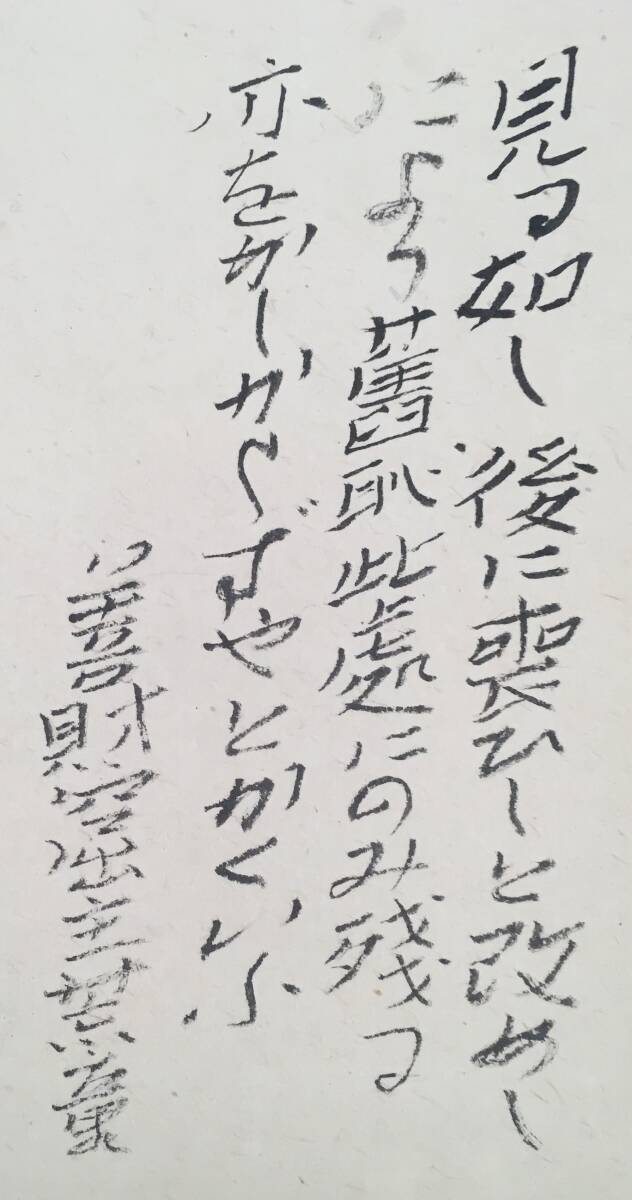 見る如し 後に喪ひしと改めし
により 舊恥此處にのみ残る
亦をかしからずやとかくいふ
善財窟主